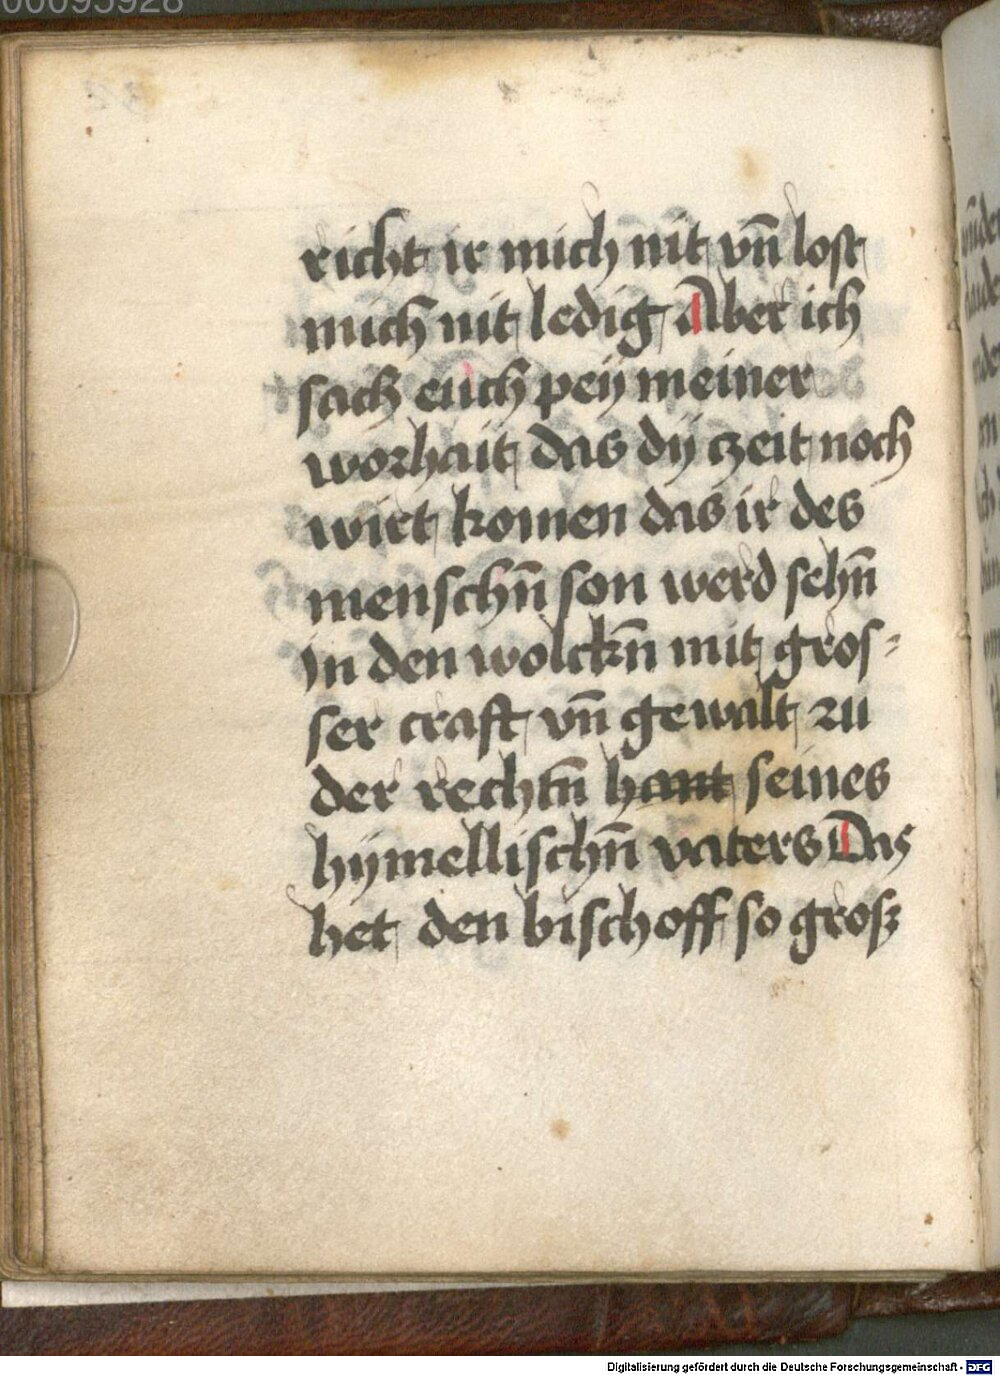 00095928
richt ir mich nit vn̄ lost
mich nit ledig Aber ich
sach euch peÿ meiner
worhait das dÿ czeit noch
wirt komen das ir des
menschn̄ son werd sehn̄
in den wolckn̄ mit gros-
ser craft vn̄ gewalt zu
der rechtn̄ hant seines
hÿmellischn̄ vaters Das
het den bischoff so groß
Digitalisierung gefördert durch die Deutsche Forschungsgemeinschaft - DFG